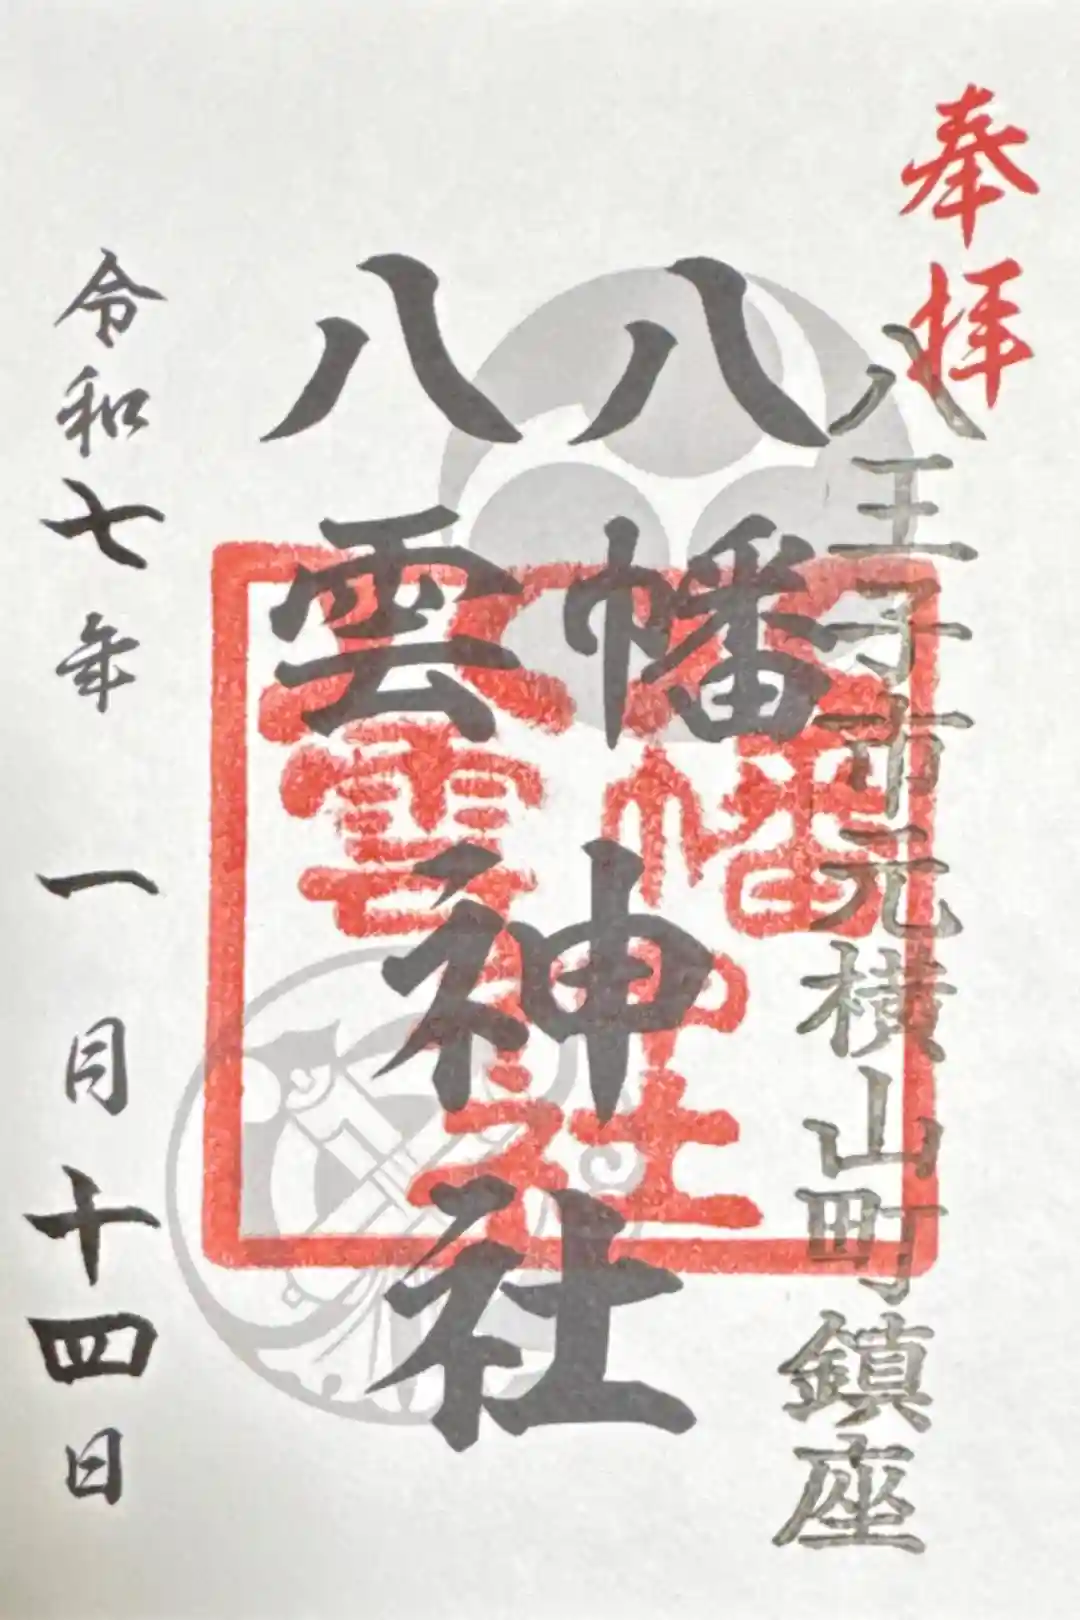 奉拝
八王子市元横山町鎮座
八幡
八雲
神社
八幡
八雲
神社
令和七年 一月十四日